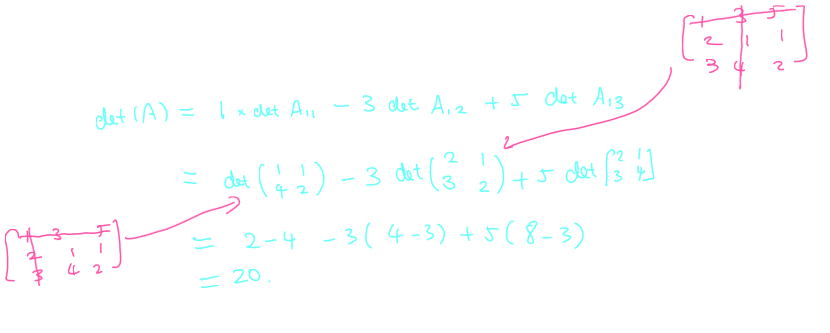 1 3 5
2 1 1
3 4 2
det(A) = 1 × det A₁₁ − 3 det A₁₂ + 5 det A₁₃
= det (1 1 4 2) − 3 det (2 1 3 2) + 5 det [2 1 3 4]
1 3 5
2 1 1
3 4 2
= 2 − 4 − 3(4 − 3) + 5(8 − 3)
= 20.